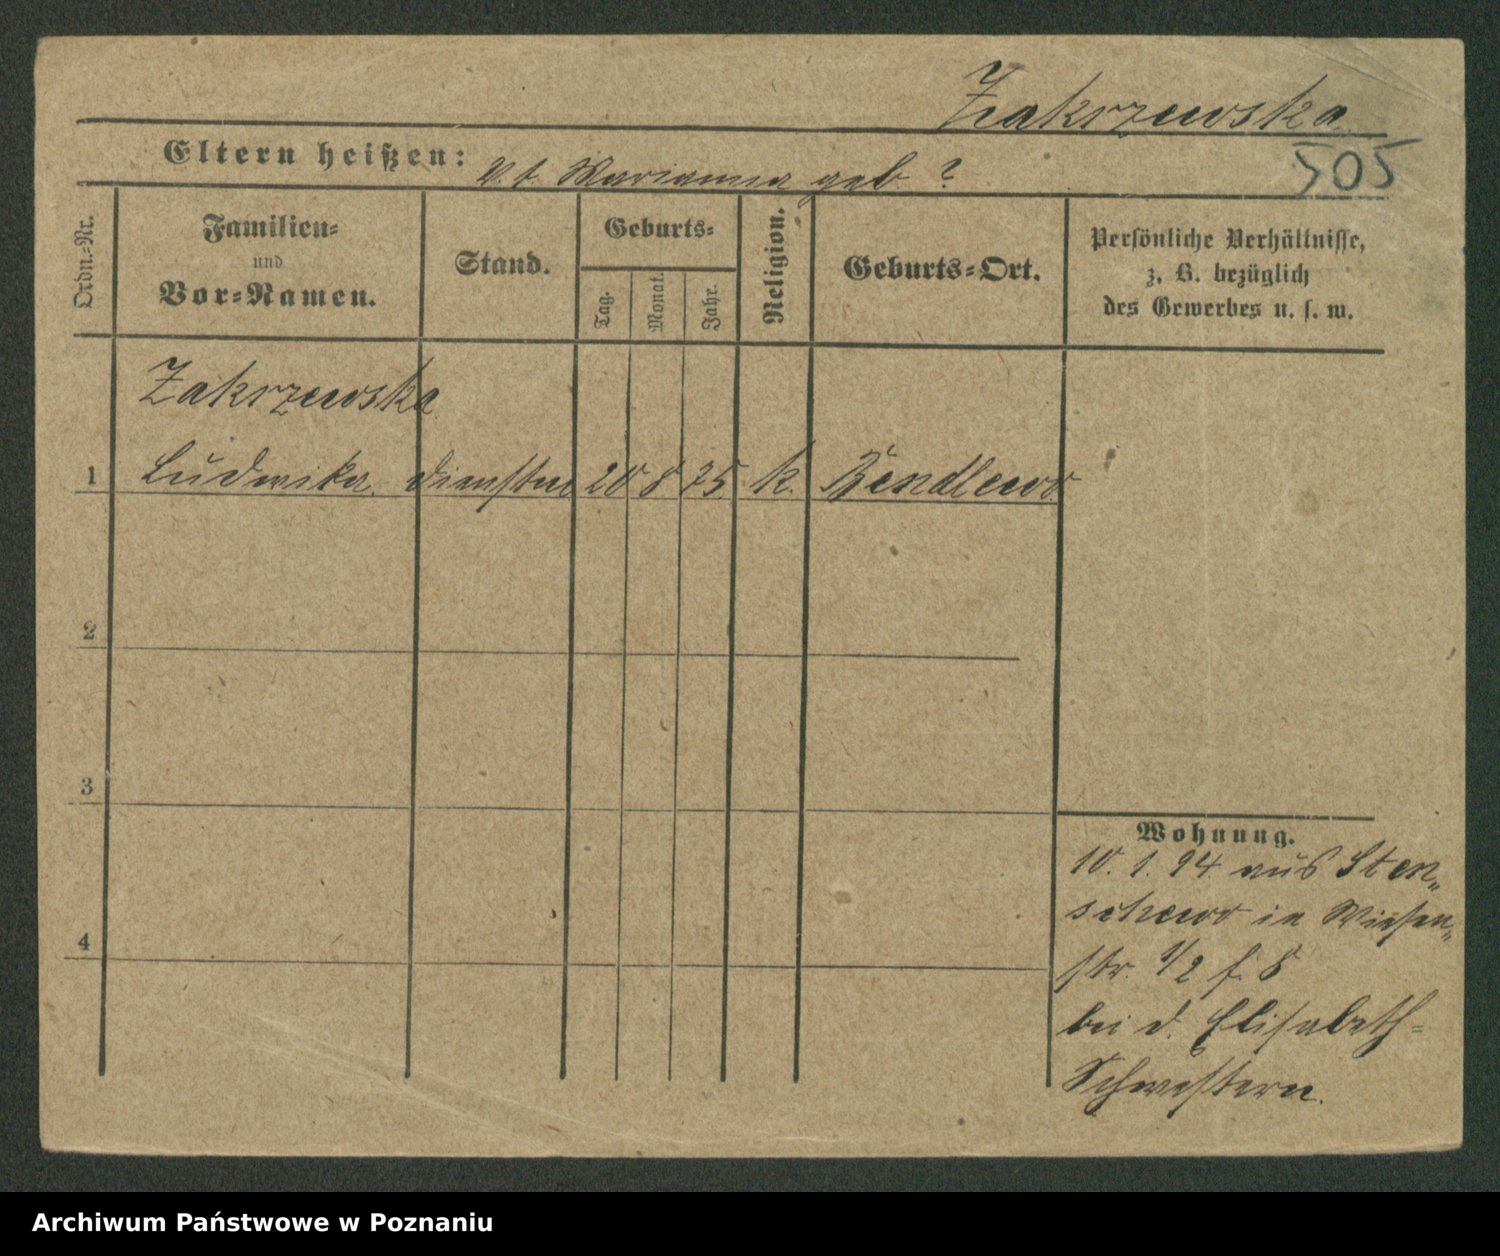 Zakrzewska
Eltern heißen: V. t. Marianna geb. ?
505
Ordn.-Nr.
Familien-
und
Vor-Namen.
Stand.
Geburts-
Tag.
Monat.
Jahr.
Religion.
Geburts-Ort.
Persönliche Verhältnisse,
z. B. bezüglich
des Gewerbes u. s. w.
Zakrzewska
1 Ludwika. 20 8 75 k.
2
3
4
Wohnung.
10. 1. 94 aus Sten„
schewo in Wiesen„
str. 1/2 f. 8
bei d. Elisabeth-
Schwestern.
Archiwum Państwowe w Poznaniu